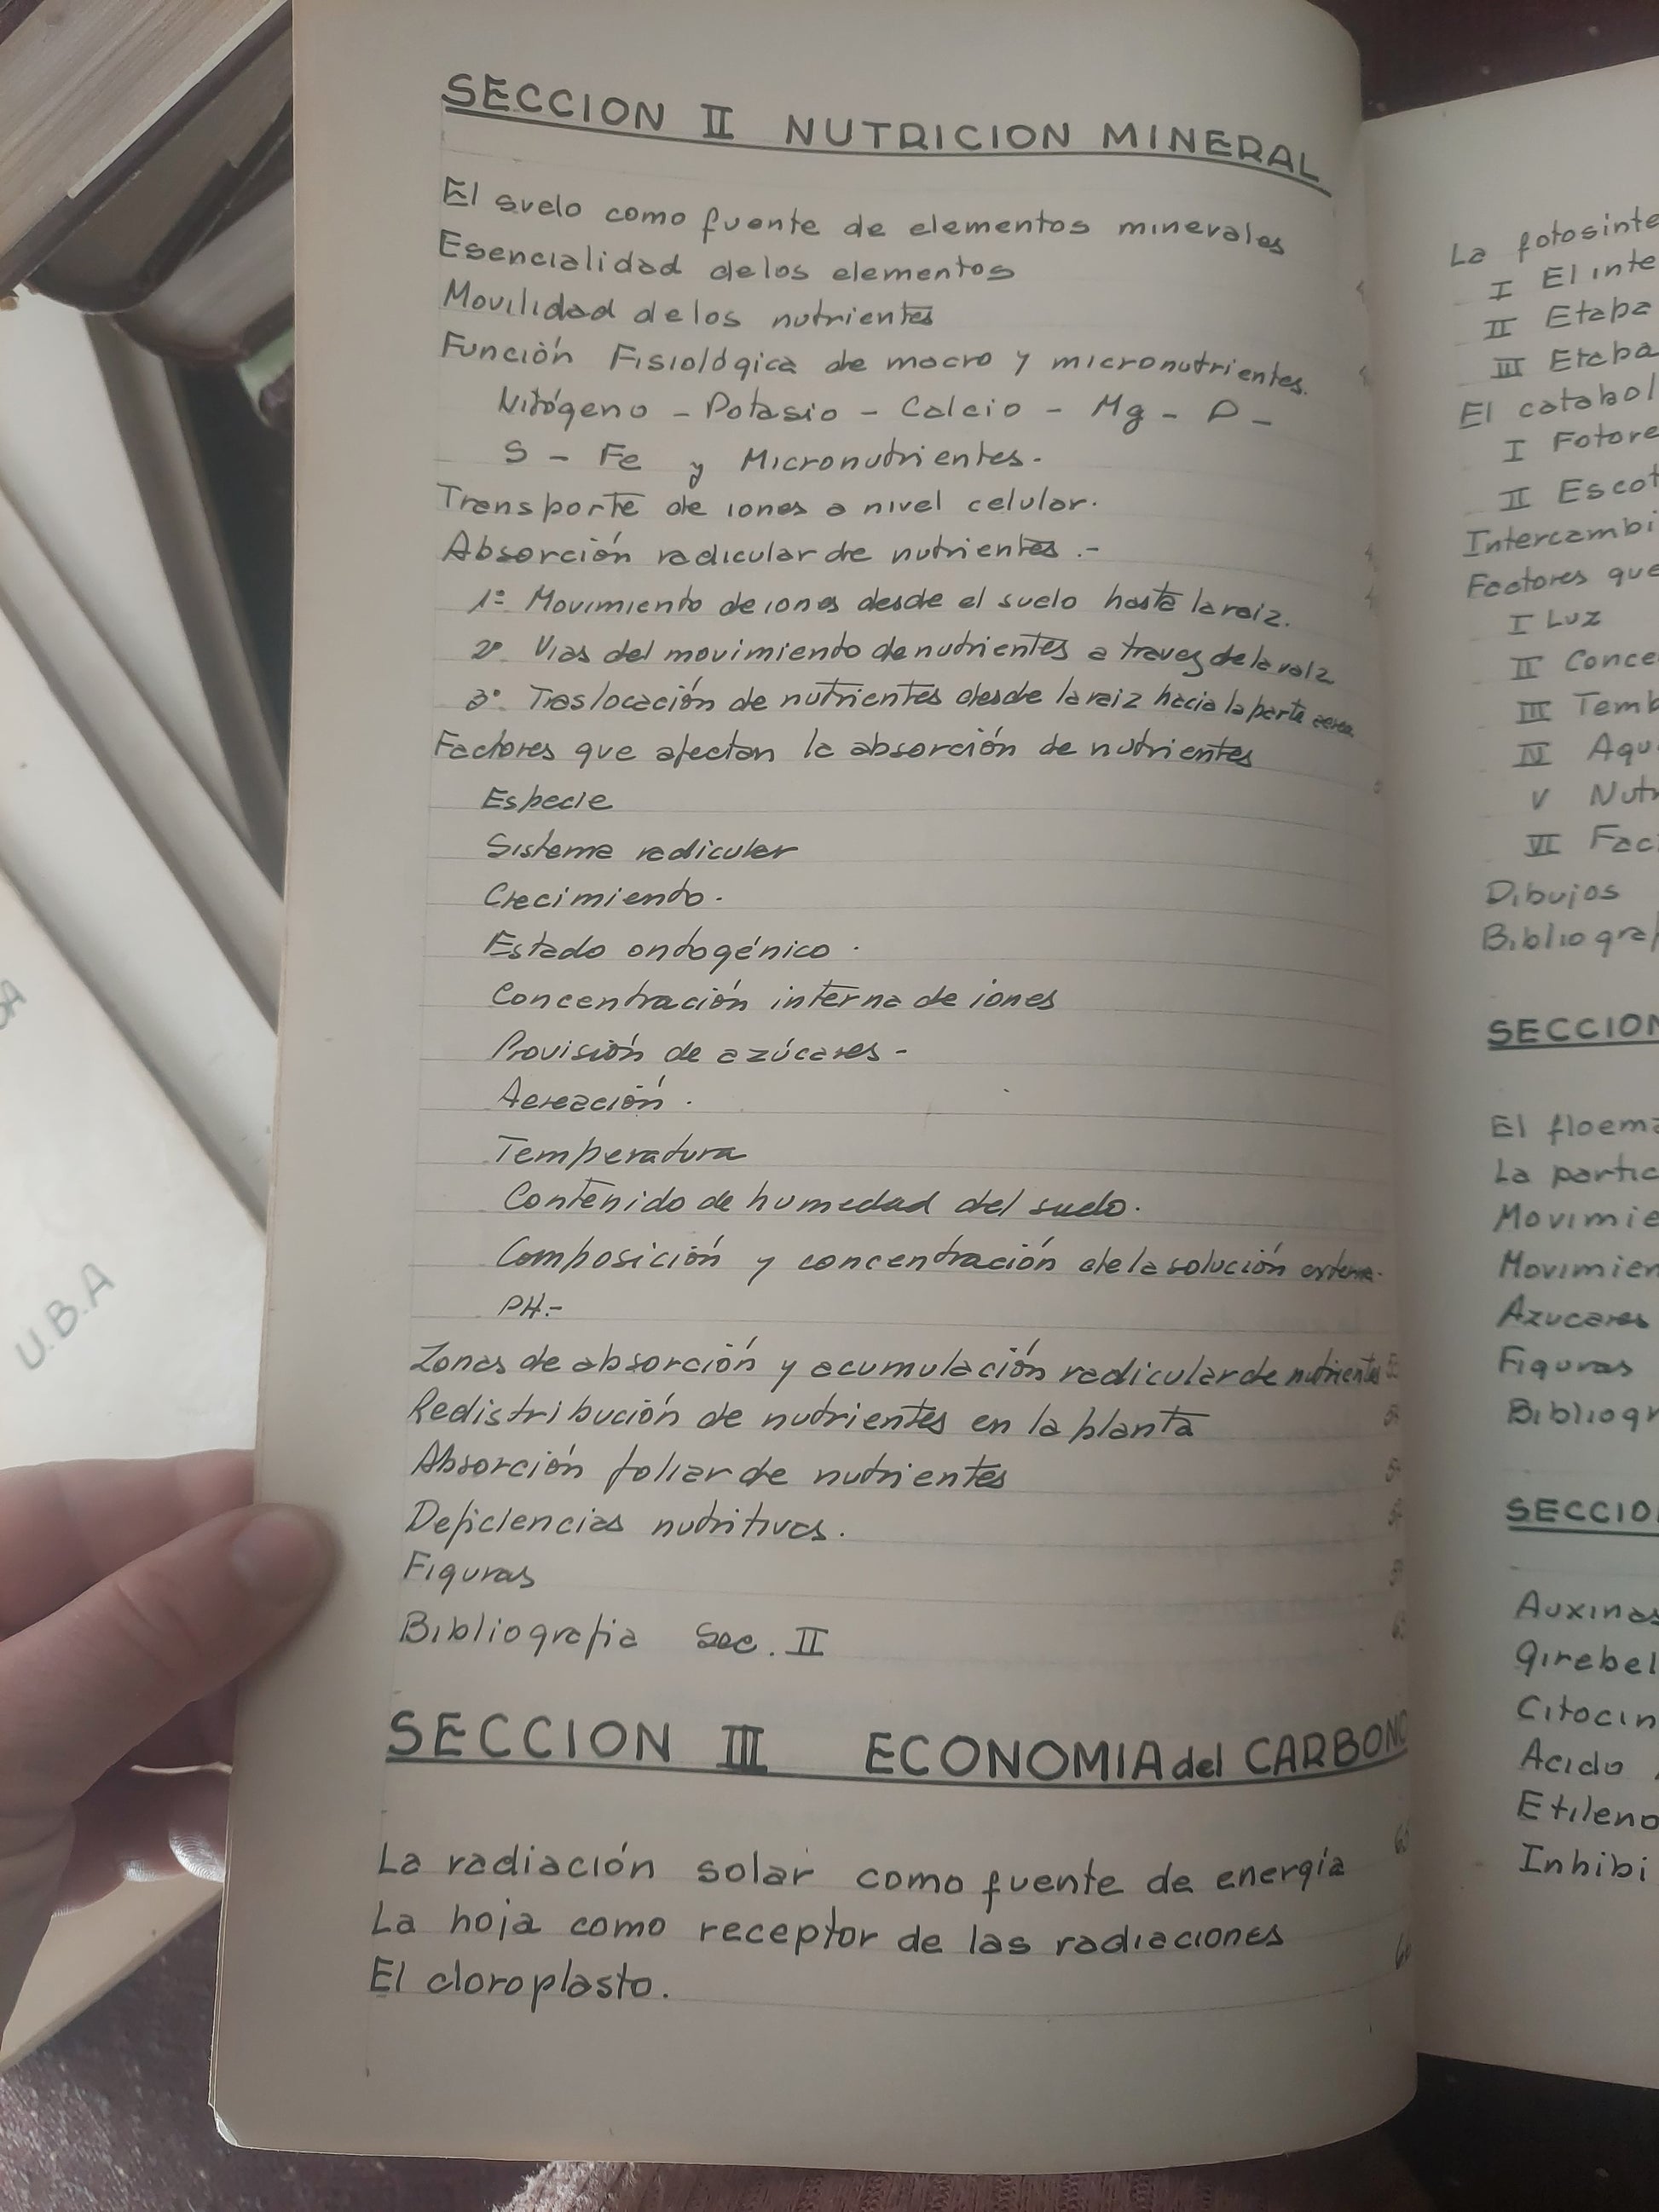 SECCION II NUTRICION MINERAL
El suelo como fuente de elementos minerales
Esencialidad de los elementos
Movilidad de los nutrientes
Función Fisiológica de macro y micronutrientes.
Nitógeno - Potasio - Calcio - Mg - P -
S - Fe y Micronutrientes.
Transporte de iones a nivel celular.
Absorción radicular de nutrientes.-
1º Movimiento de iones desde el suelo hasta la raiz.
2º Vias del movimiento de nutrientes a traves de la raiz
3º Traslocación de nutrientes desde la raiz hacia la parte aerea
Factores que afectan la absorción de nutrientes
Especie
Sistema radicular
Crecimiento.
Estado ontogénico.
Concentración interna de iones
Provisión de azúcares-
Aereación.
Temperatura
Contenido de humedad del suelo.
Composición y concentración de la solución externa.
PH.-
Zonas de absorción y acumulación radicular de nutrientes
Redistribución de nutrientes en la planta
Absorción foliar de nutrientes
Deficiencias nutritivas.
Figuras
Bibliografia Sec. II
SECCION III ECONOMIA del CARBONO
La radiación solar como fuente de energía
La hoja como receptor de las radiaciones
El cloroplasto.
La fotosinte
I El inte
II Etapa
III Etapa
El catabol
I Fotore
II Escot
Intercambi
Factores que
I Luz
II Conce
III Temp
IV Agu
V Nutr
VI Fac
Dibujos
Bibliogra
SECCION
El floema
La partic
Movimie
Movimien
Azucares
Figuras
Bibliogr
SECCIO
Auxinas
Girebel
Citocin
Acido
Etileno
Inhibi
U.B.A